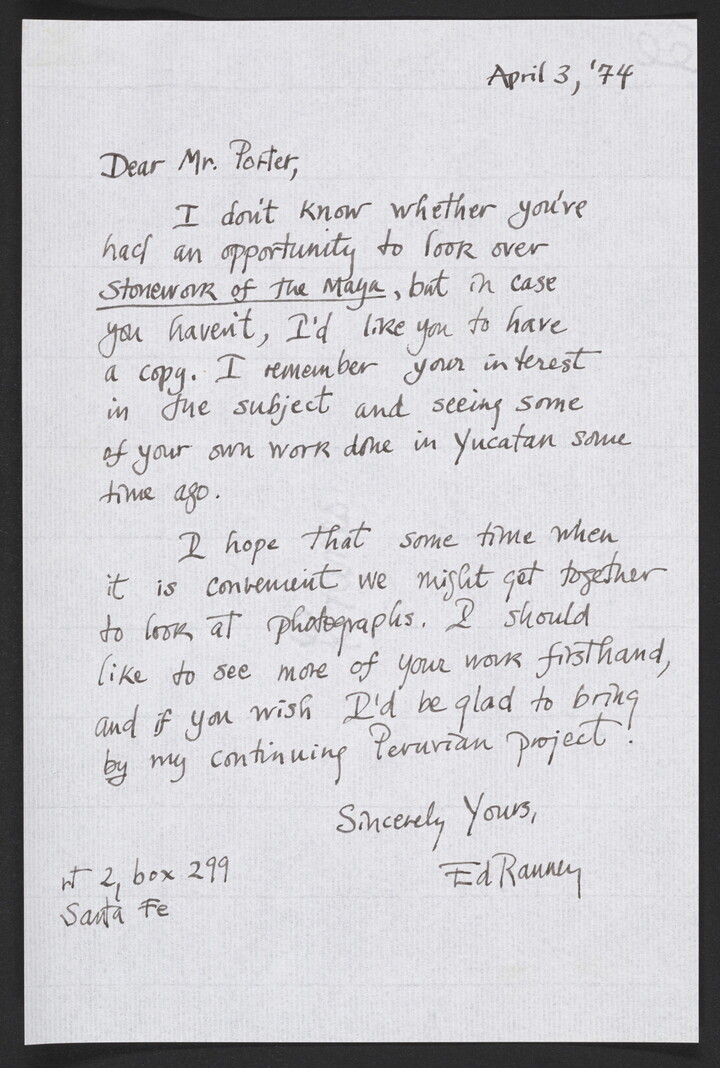 April 3, '74
Dear Mr. Porter,
I don't know whether you've
had an opportunity to look over
Stonework of the Maya, but in case
you haven't, I'd like you to have
a copy. I remember your interest
in the subject and seeing some
of your own work done in Yucatan some
time ago.
I hope that some time when
it is convenient we might get together
to look at photographs. I should
like to see more of your work firsthand,
and if you wish I'd be glad to bring
by my continuing Peruvian project!
Sincerely Yours,
Ed Ranney
rt 2, box 299
Santa Fe